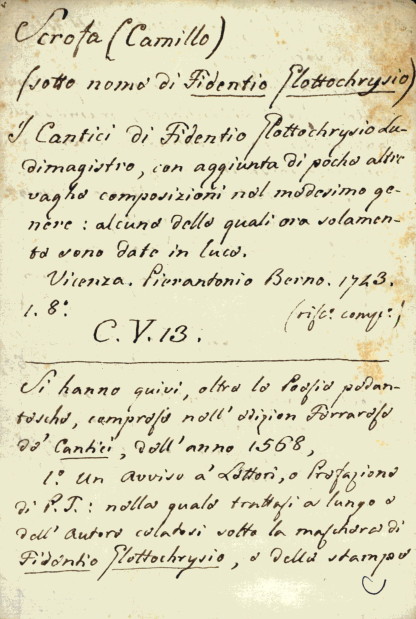 Scrofa (Camillo)
(sotto nome di Fidentio Glottochrysio)
I Cantici di Fidentio Glottochrysio Lu-
dimagistro, con aggiunta di poche altre
vaghe composizioni nel medesimo ge-
nere: alcune delle quali ora solamen-
te sono date in luce.
Vicenza. Pierantonio Berno. 1743.
1. 8.º
(risc.º comp.º)
C. V. 13.
Si hanno quivi, oltre le Poesie pedan-
tesche, comprese nell' edizion Ferrarese
de' Cantici, dell' anno 1568,
1.º Un Avviso a' Lettori, o Prefazione
di P. T.: nella quale trattasi a lungo e
dell' Autore celatosi sotto la maschera di
Fidentio Glottochrysio, e delle stampe